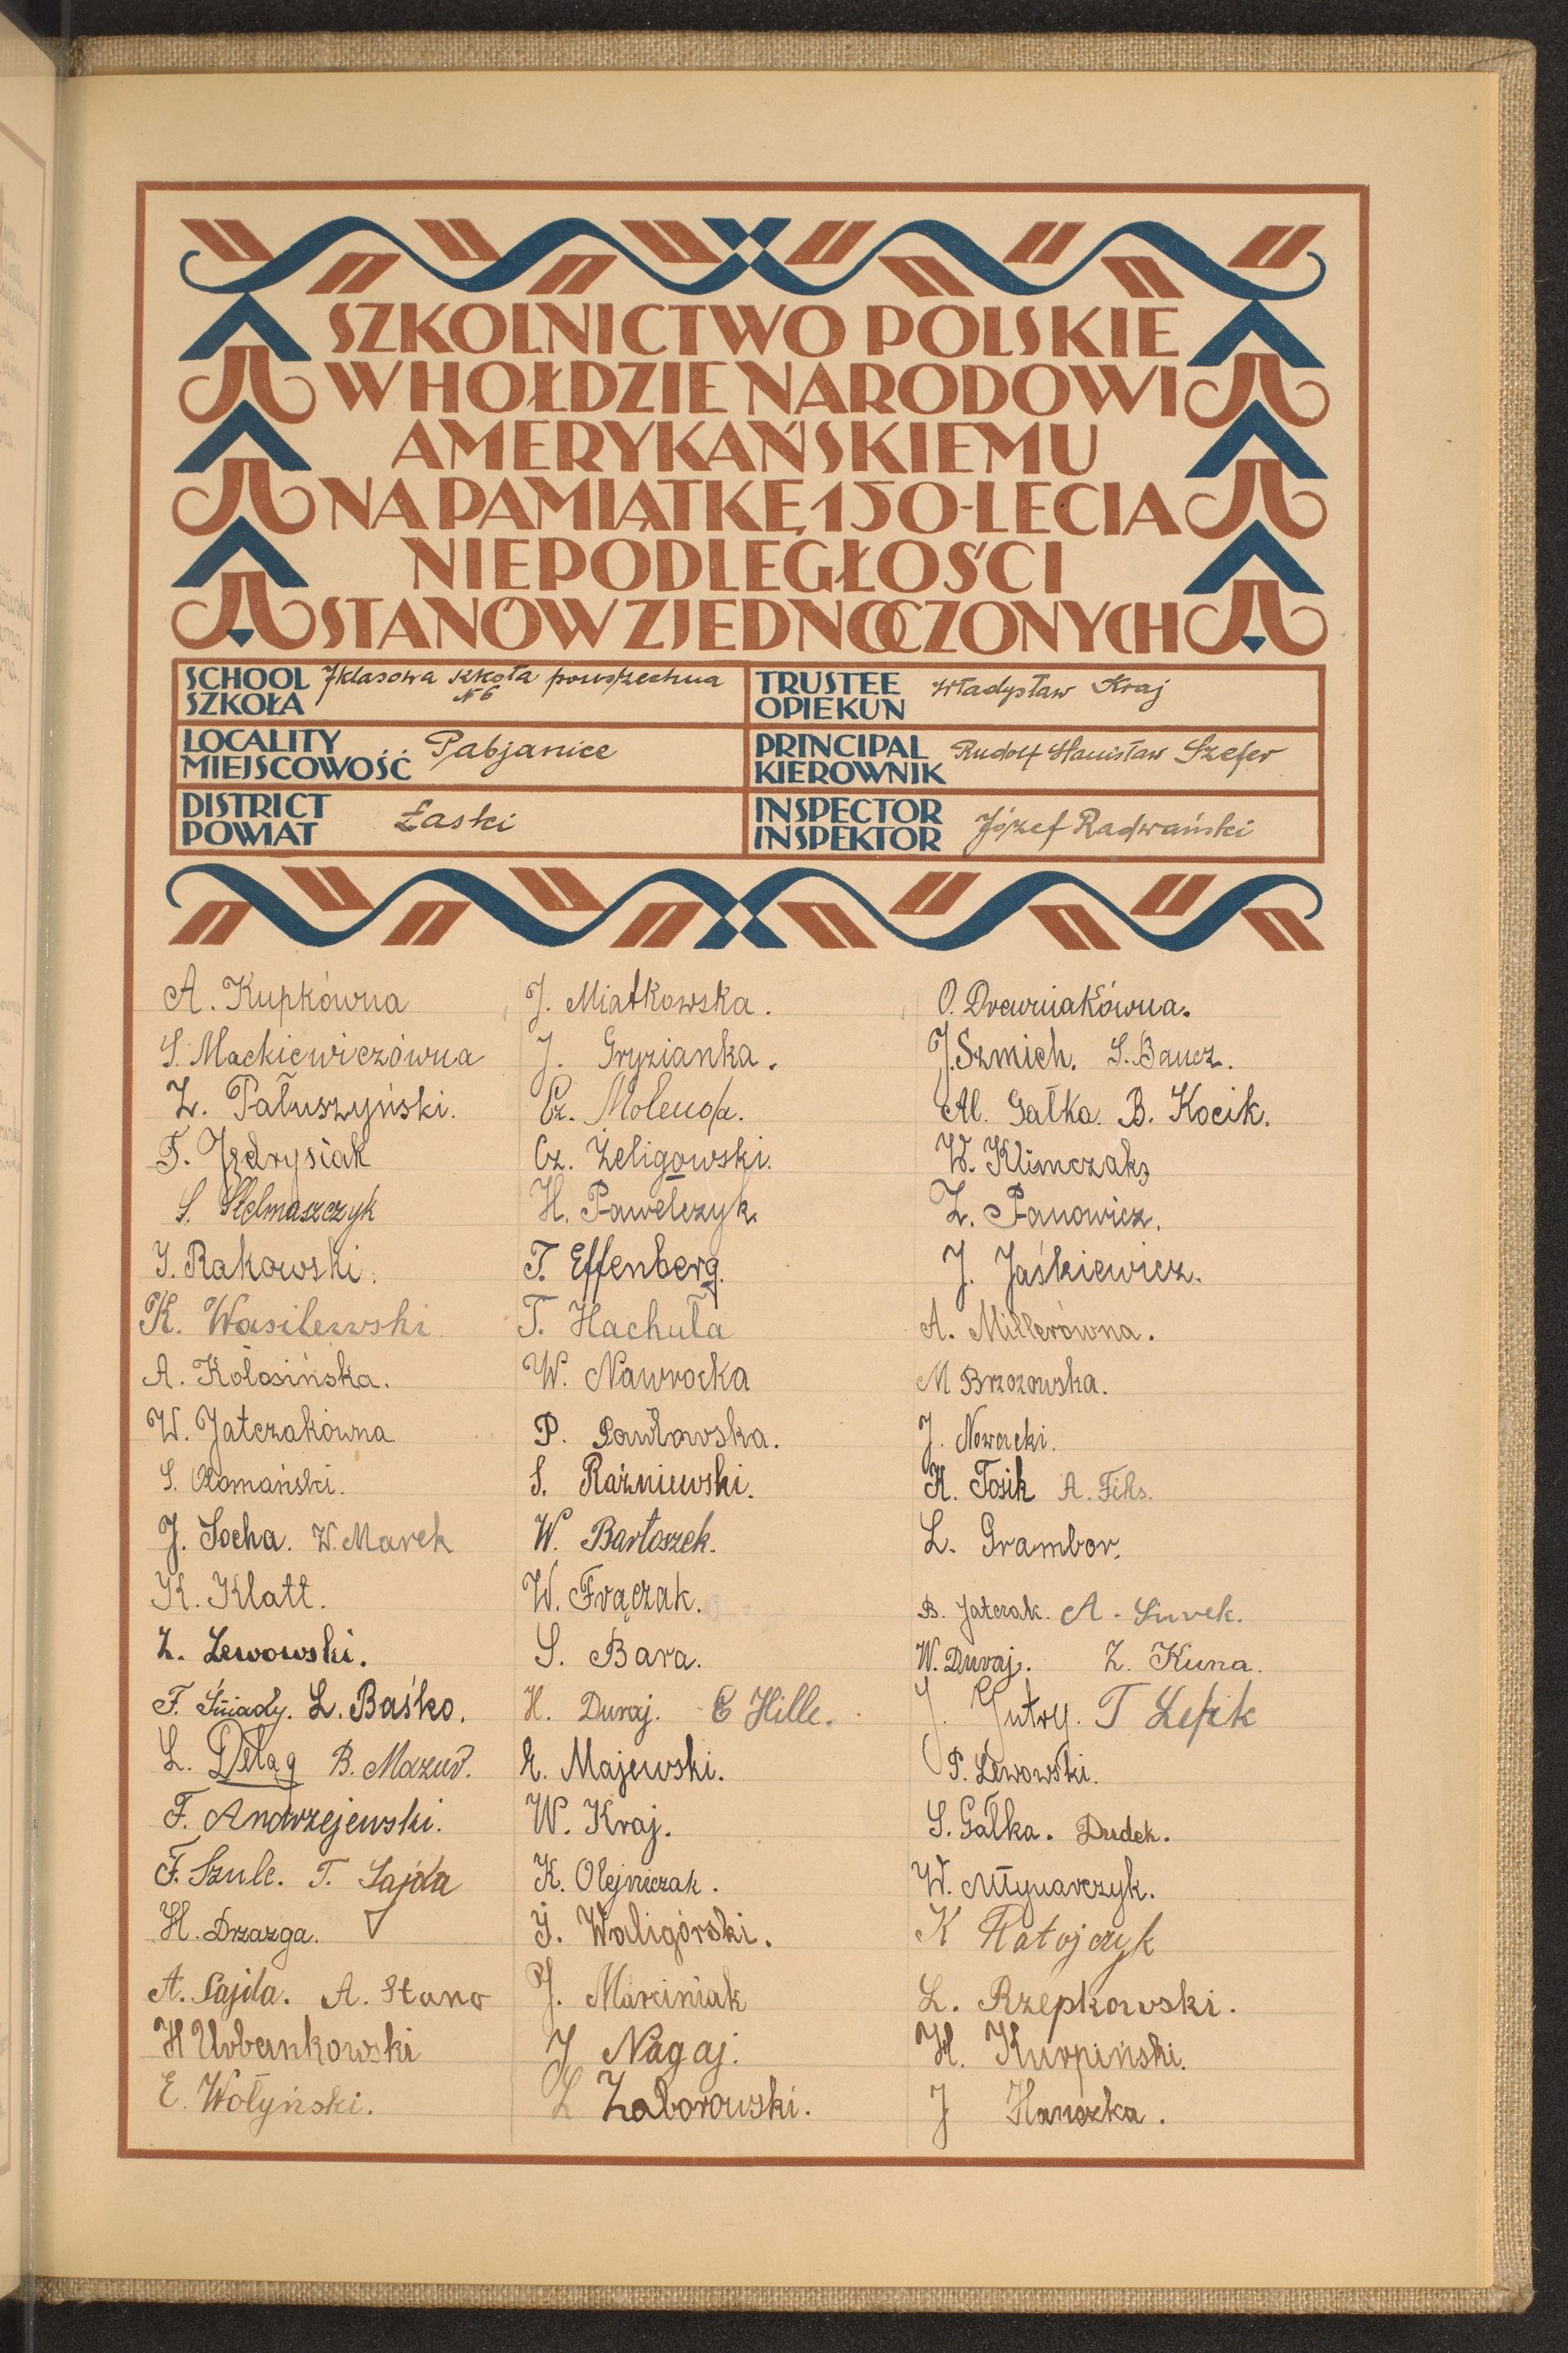 SZKOLNICTWO POLSKIE
W HOŁDZIE NARODOWI
AMERYKAŃSKIEMU
NA PAMIĄTKĘ 150-LECIA
NIEPODLEGŁOŚCI
STANÓW ZJEDNOCZONYCH
SCHOOL SZKOŁA 7klasowa szkoła powszechna N 6
TRUSTEE OPIEKUN Władysław Kraj
LOCALITY MIEJSCOWOŚĆ Pabjanice
PRINCIPAL KIEROWNIK Rudolf Stanisław Szefer
DISTRICT POWIAT Łaski
INSPECTOR INSPEKTOR Józef Radwański
A. Kupkówna
S. Mackiewiczówna
Z. Pałuszyński.
F. Jędrysiak
S. Stelmaszczyk
J. Rakowski.
K. Wasilewski
A. Kołosińska.
W. Jatczakówna
S.
J. Socha. W. Marek
K. Klatt.
Z. Lewowski.
F. Śniady. L. Baśko.
L. Deląg B. Mazur.
F. Andrzejewski.
F. Szulc. T. Sajda
H. Drzazga.
A. Sajda. A. Stano
H Urbankowski
E. Wołyński.
J. Miatkowska.
J. Gryzianka.
Cz. Molenda.
Cz. Żeligowski.
H. Pawełczyk.
T. Effenberg.
T. Hachuła
W. Nawrocka
P. Pawłowska.
S. Raźniewski.
W. Bartoszek.
W. Frączak.
S. Bara.
H. Duraj. E Hille.
E. Majewski.
W. Kraj.
K. Olejniczak.
J. Waligórski.
J. Marciniak
J Nagaj.
Z Zaborowski.
O. Drewniakówna.
J. Szmich. S. Baucz.
Al. Gałka. B. Kocik.
W. Klimczak,
Z. Panowicz.
J. Jaśkiewicz.
A. Millerówna.
M Brzozowska.
J. Nowacki.
K. Tosik A. Fiks.
L. Grambor.
B. Jatczak. A. Surek.
W. Duraj. Z. Kuna.
J. Jutry. T Lepik
P. Lewowski.
S. Gałka. Dudek.
W. Młynarczyk.
K Ratojczyk
L. Rzepkowski.
H. Kurpiński.
J Haneczka.